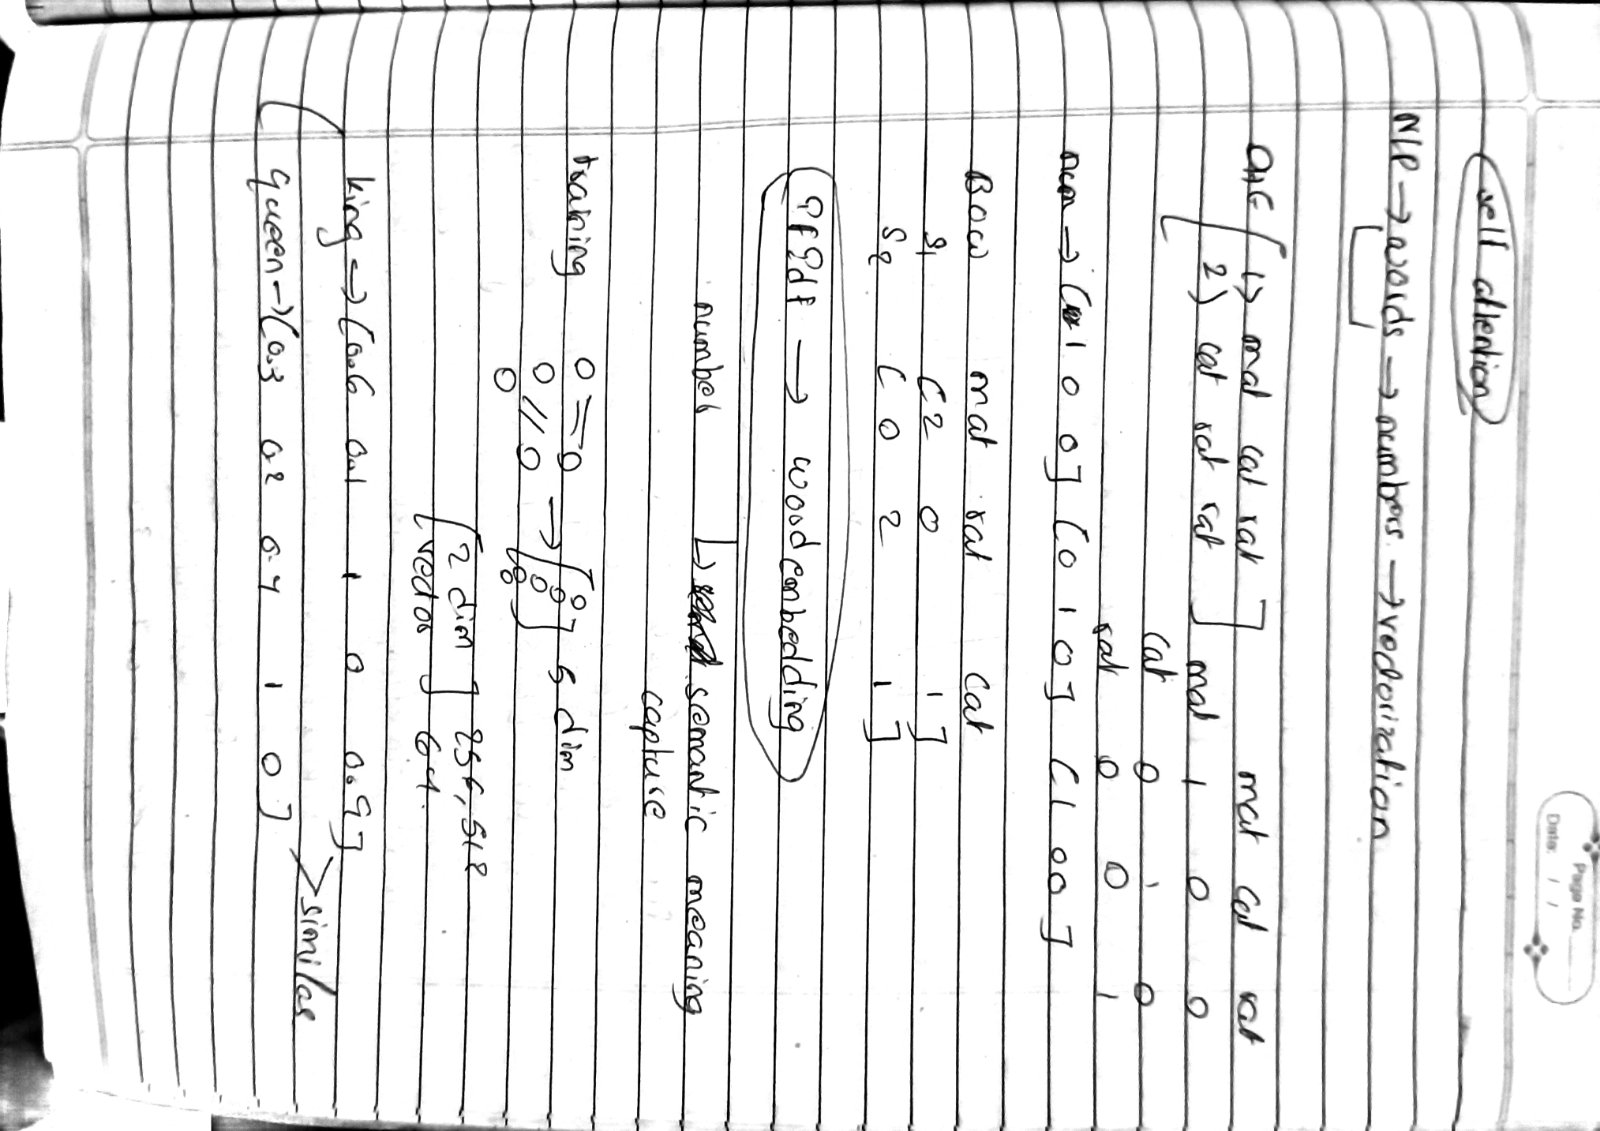 Page No.
Date: / /
self attention
NLP → words → numbers. → vectorization
OHE [ 1) mat cat rat ] mat cat rat
2) cat rat rat ] mat 1 0 0
cat 0 1 0
rat 0 0 1
→ [ 1 0 0 ] [ 0 1 0 ] [ 1 0 0 ]
BOW mat rat cat
S1 [ 2 0 1 ]
S2 [ 0 2 1 ]
TFIdf → word embedding
number
↳ semantic meaning
capture
training 0 = 0
0 // 0 → [ 0 0 0 0 0 ] 5 dim
0
[ 2 dim ] 256, 512
[ vector ] 64.
king → [ 0.6 0.1 1 0 0.9 ]
queen → [ 0.3 0.2 0.4 1 0 ] > similar